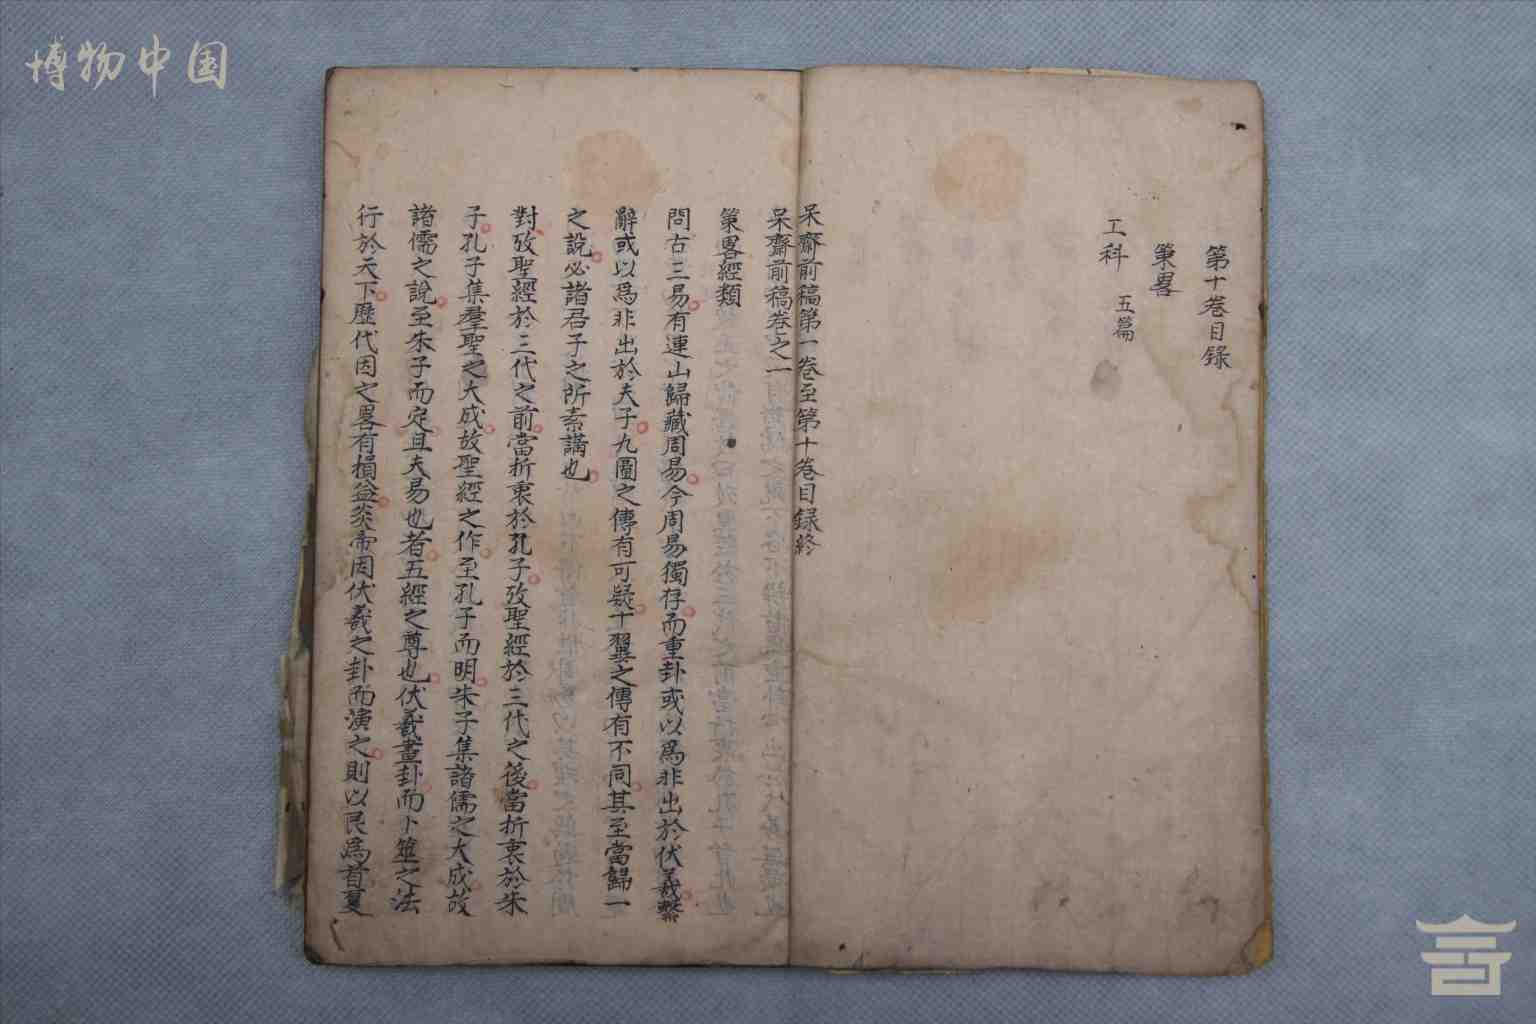 博物中国
第十卷目録
策畧
工科 五篇
呆齋前稿第一卷至第十卷目録終
呆齋前稿卷之一
策畧經類
問古三易有連山歸藏周易今周易獨存而重卦或以爲非出於伏羲繫
辭或以爲非出於夫子九圖之傳有可疑十翼之傳有不同其至當歸一
之說必諸君子之所素講也
對攷聖經於三代之前當折衷於孔子攷聖經於三代之後當折衷於朱
子孔子集羣聖之大成故聖經之作至孔子而明朱子集諸儒之大成故
諸儒之說至朱子而定且夫易也者五經之尊也伏羲畫卦而卜筮之法
行於天下歷代因之畧有損益炎帝因伏羲之卦而演之則以艮爲首夏